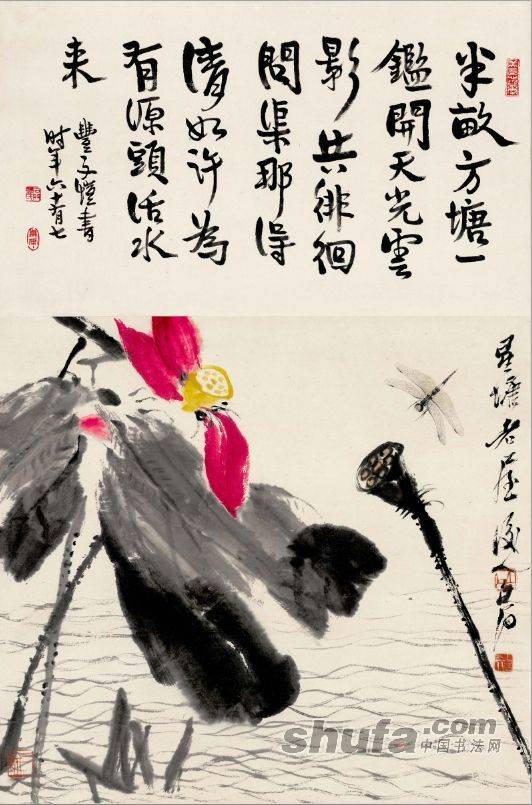 半畝方塘一
鑑開天光雲
影共徘徊
問渠那得
清如許為
有源頭活水
来
豐子愷書
時年六十有七
星塘老屋後人白石
shufa.com
中国书法网